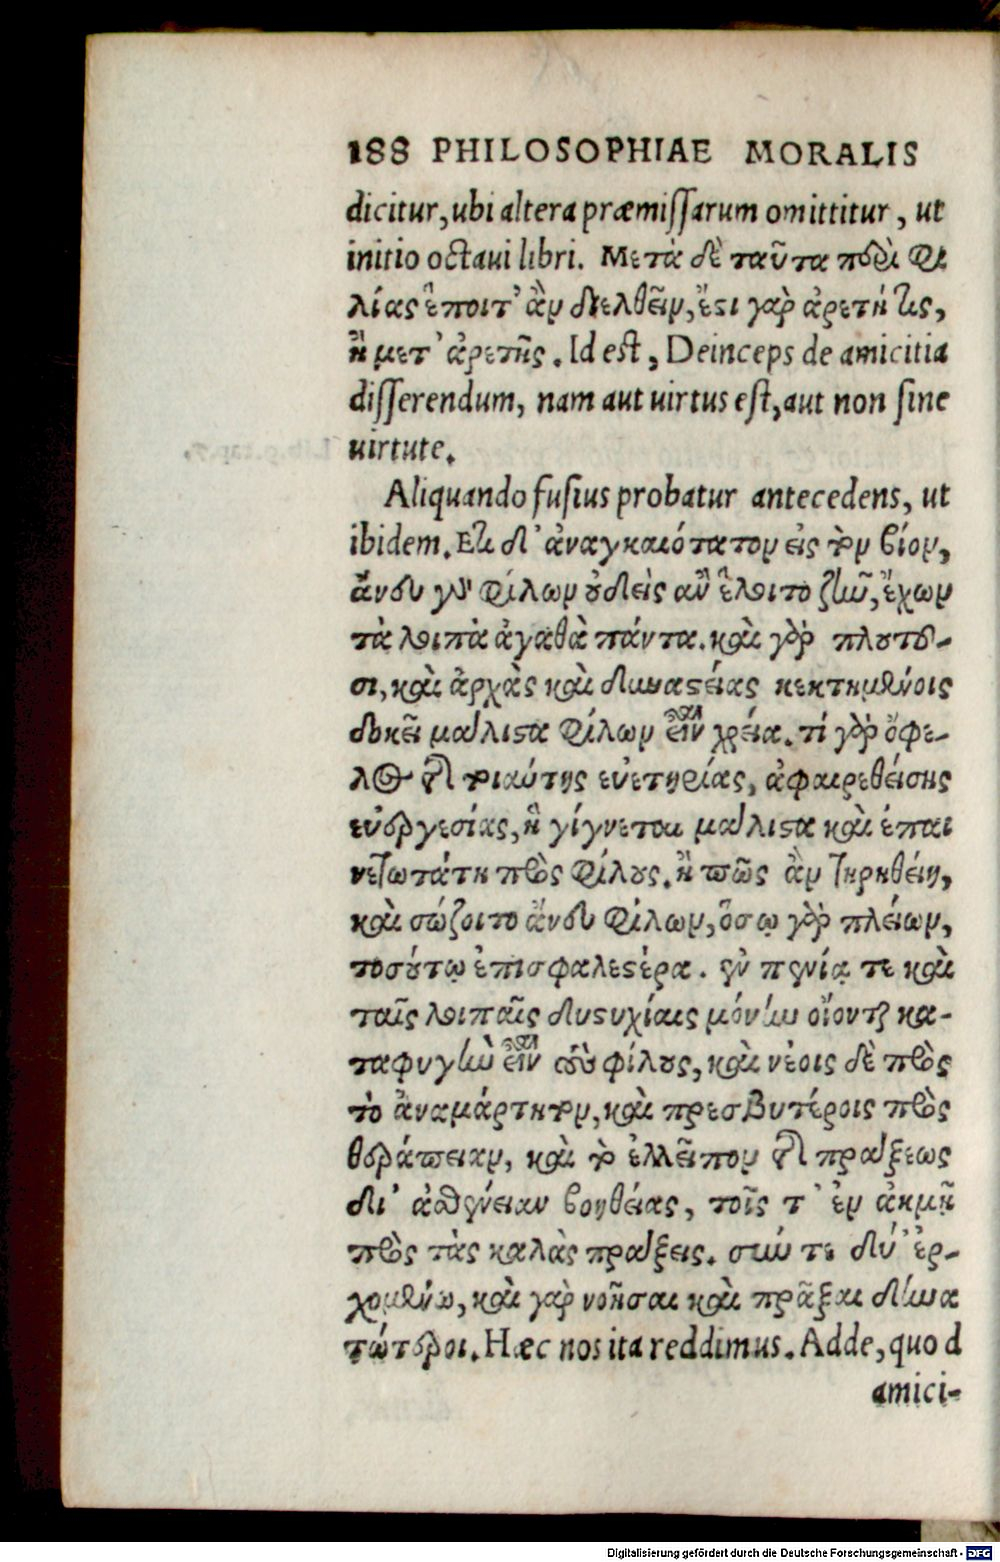 188 PHILOSOPHIAE MORALIS
dicitur, ubi altera præmissarum omittitur, ut
initio octaui libri. Μετὰ δὲ ταῦτα περὶ φι
λίας ἕποιτ' ἂν διελθεῖν, ἔστι γὰρ ἀρετή τις,
ἢ μετ' ἀρετῆς. Id est, Deinceps de amicitia
disserendum, nam aut uirtus est, aut non sine
uirtute.
Aliquando fusius probatur antecedens, ut
ibidem. Ἔτι δ' ἀναγκαιότατον εἰς τὸν βίον,
ἄνευ γὰρ φίλων οὐδεὶς ἂν ἕλοιτο ζῆν, ἔχων
τὰ λοιπὰ ἀγαθὰ πάντα. καὶ γὰρ πλουτοῦ-
σι, καὶ ἀρχὰς καὶ δυναστείας κεκτημένοις
δοκεῖ μάλιστα φίλων εἶναι χρεία. τί γὰρ ὄφε-
λος τῆς τοιαύτης εὐετηρίας, ἀφαιρεθείσης
εὐεργεσίας, ἣ γίγνεται μάλιστα καὶ ἐπαι
νετωτάτη πρὸς φίλους. ἢ πῶς ἂν τηρηθείη,
καὶ σώζοιτο ἄνευ φίλων, ὅσῳ γὰρ πλείων,
τοσούτῳ ἐπισφαλεστέρα. ἐν πενίᾳ τε καὶ
ταῖς λοιπαῖς δυστυχίαις μόνην οἴονται κα-
ταφυγὴν εἶναι τοὺς φίλους, καὶ νέοις δὲ πρὸς
τὸ ἀναμάρτητον, καὶ πρεσβυτέροις πρὸς
θεράπειαν, καὶ τὸ ἐλλεῖπον τῆς πράξεως
δι' ἀσθένειαν βοηθείας, τοῖς τ' ἐν ἀκμῇ
πρὸς τὰς καλὰς πράξεις. σύν τε δύ' ἐρ-
χομένω, καὶ γὰρ νοῆσαι καὶ πρᾶξαι δυνα
τώτεροι. Hæc nos ita reddimus. Adde, quod
amici-
Digitalisierung gefördert durch die Deutsche Forschungsgemeinschaft - DFG